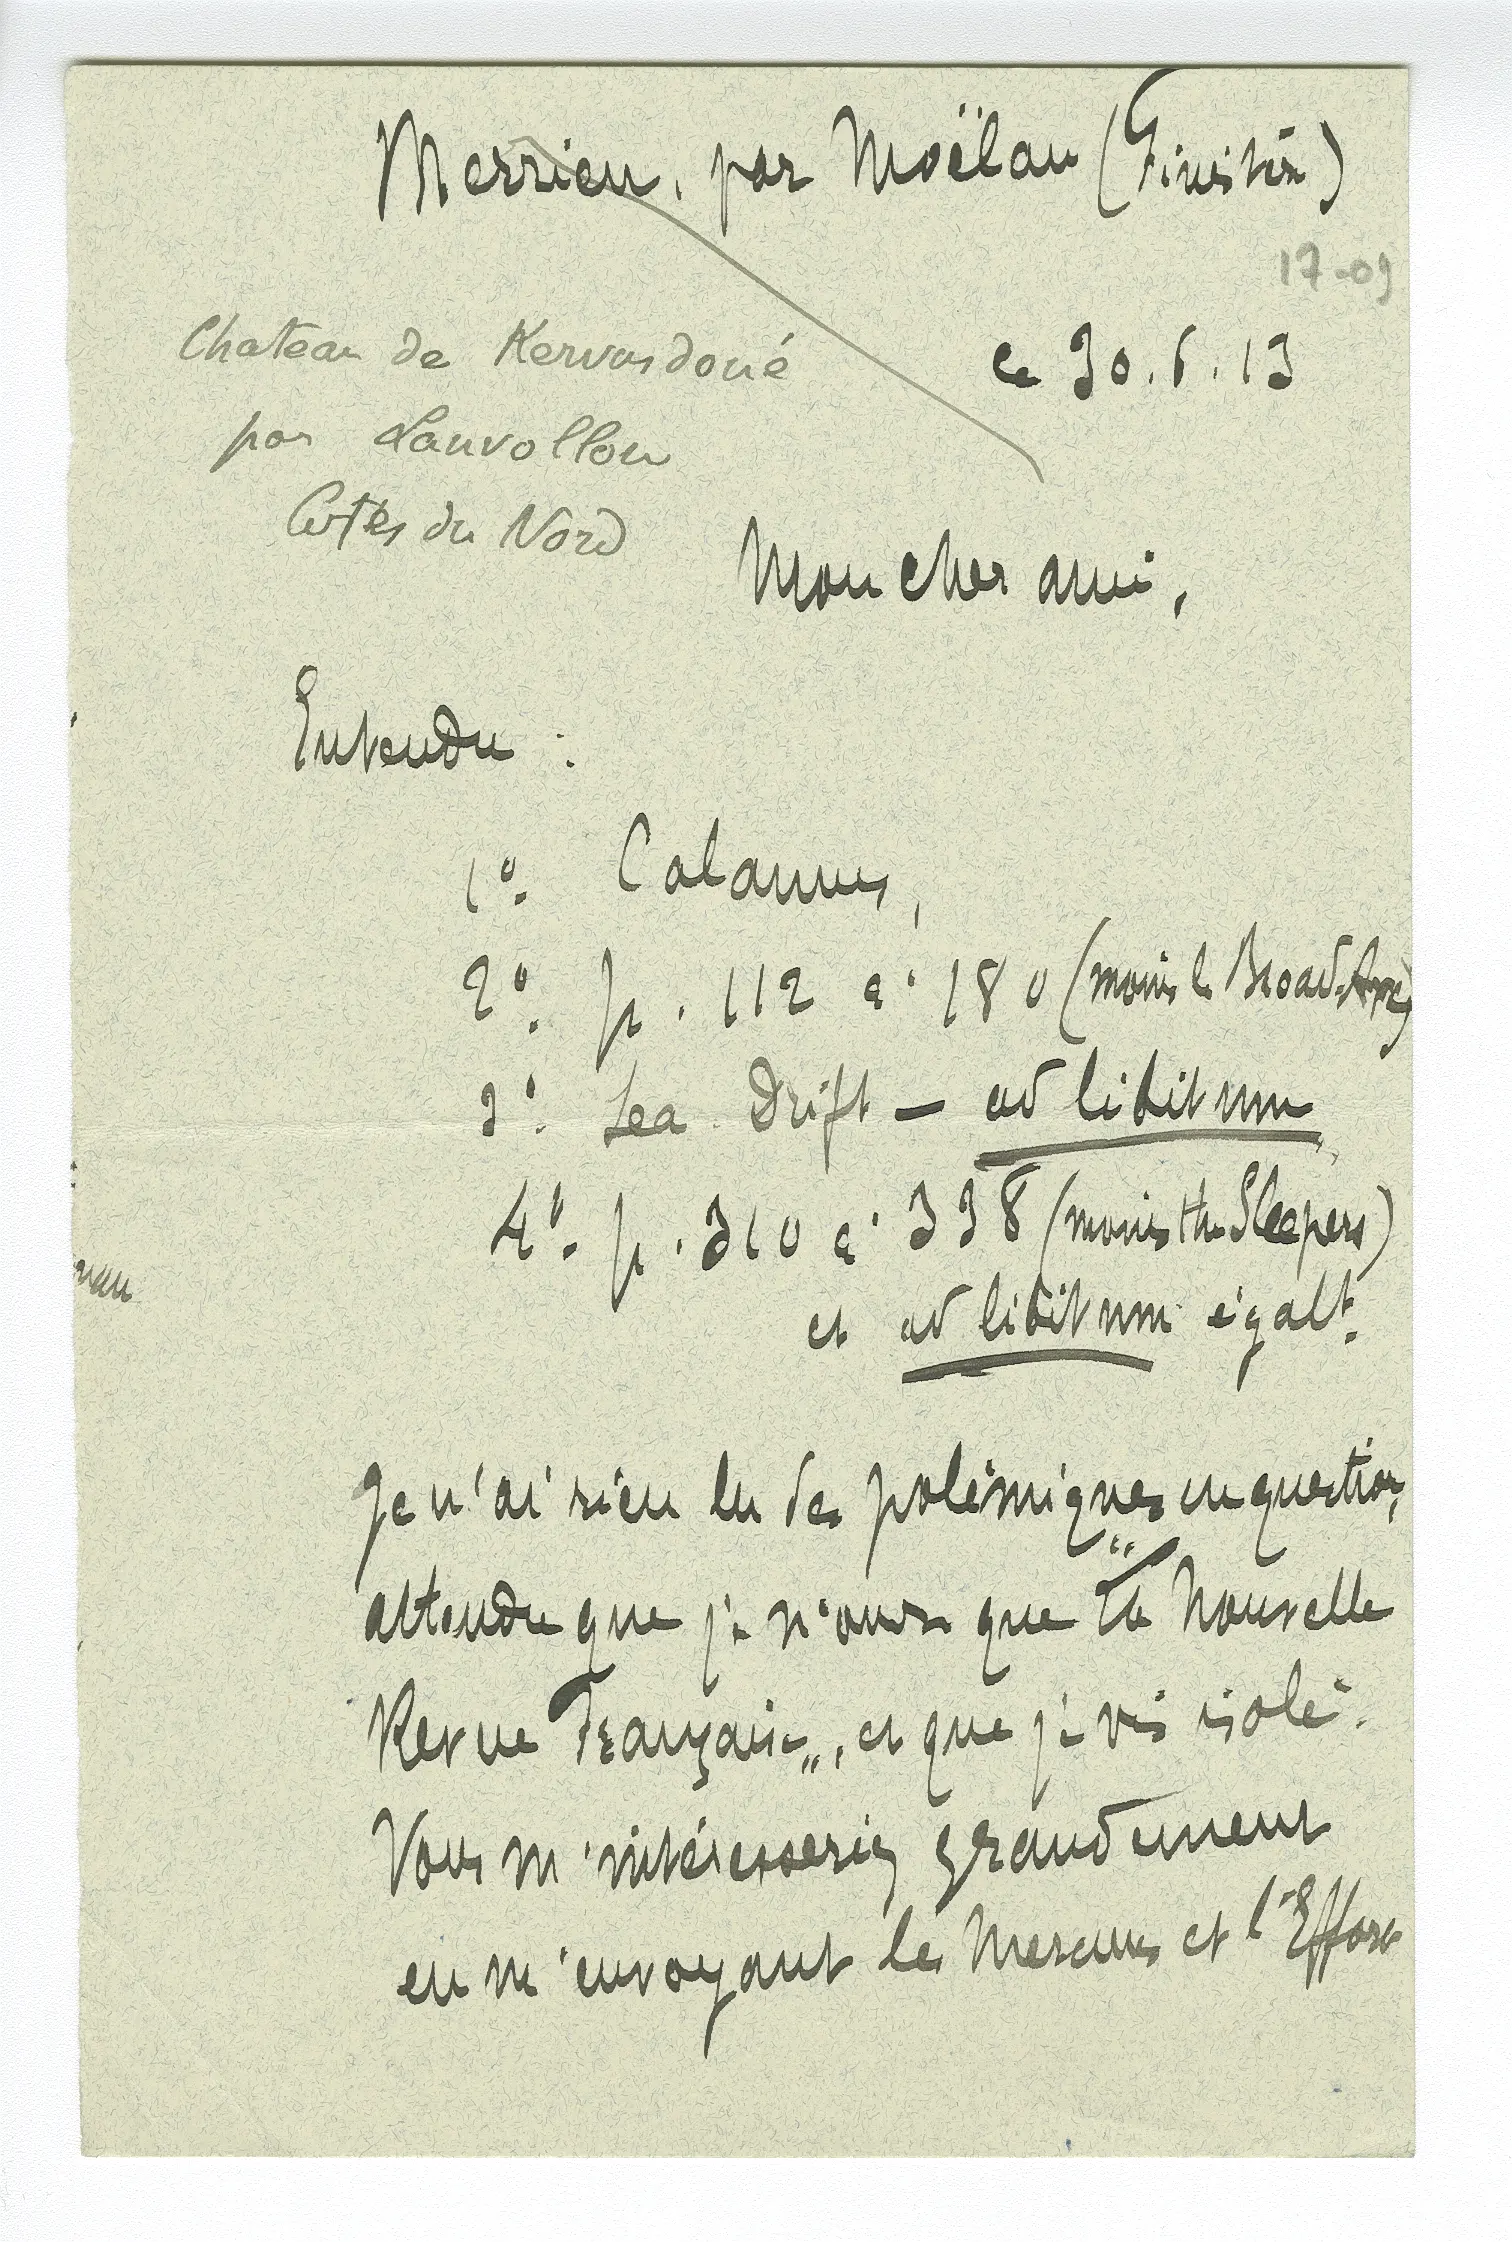 Merrien, par Moëlan (Finistère)
17-09
Chateau de Kervasdoué
par Lanvollon
Côtes du Nord
Ce 30.6.13
Mon cher ami,
Entendu :
1º. Calamus,
2º. p. 112 à 180 (moins le Broad-Axe)
3º. Sea Drift — ad libitum
4º. p. 310 à 338 (moins the Sleepers)
et ad libitum égalt.
Je n'ai rien lu des polémiques en question,
attendu que je n'ouvre que "la Nouvelle
Revue Française", et que je vis isolé.
Vous m'intéresseriez grandement
en m'envoyant les Mercures et l'Effort